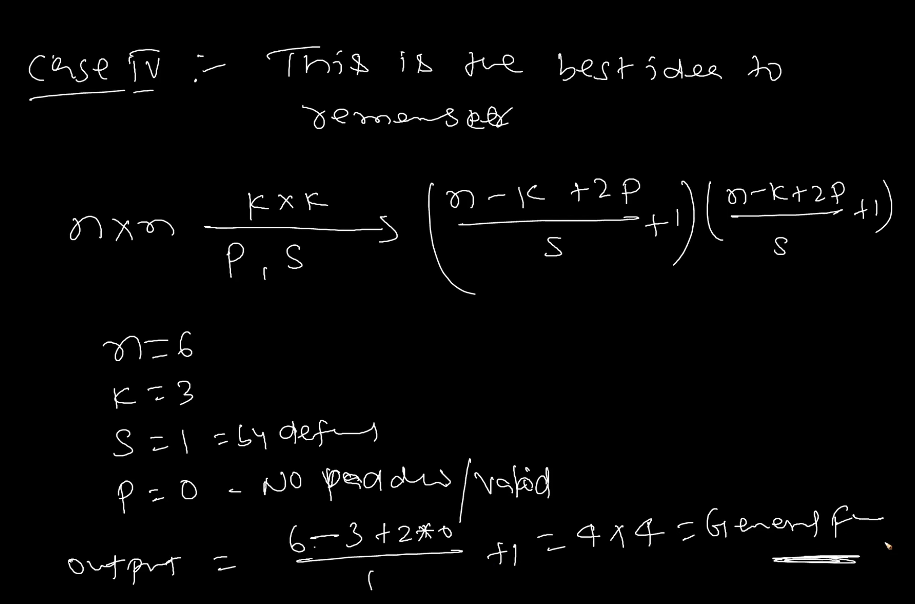 Case IV :- This is the best idea to
remember
n×n K×K / P, S → ((n-K+2P)/S +1) ((n-K+2P)/S +1)
n=6
K=3
S=1 = by default
P=0 - No padding/valid
output = (6-3+2*0)/1 +1 = 4×4 = General